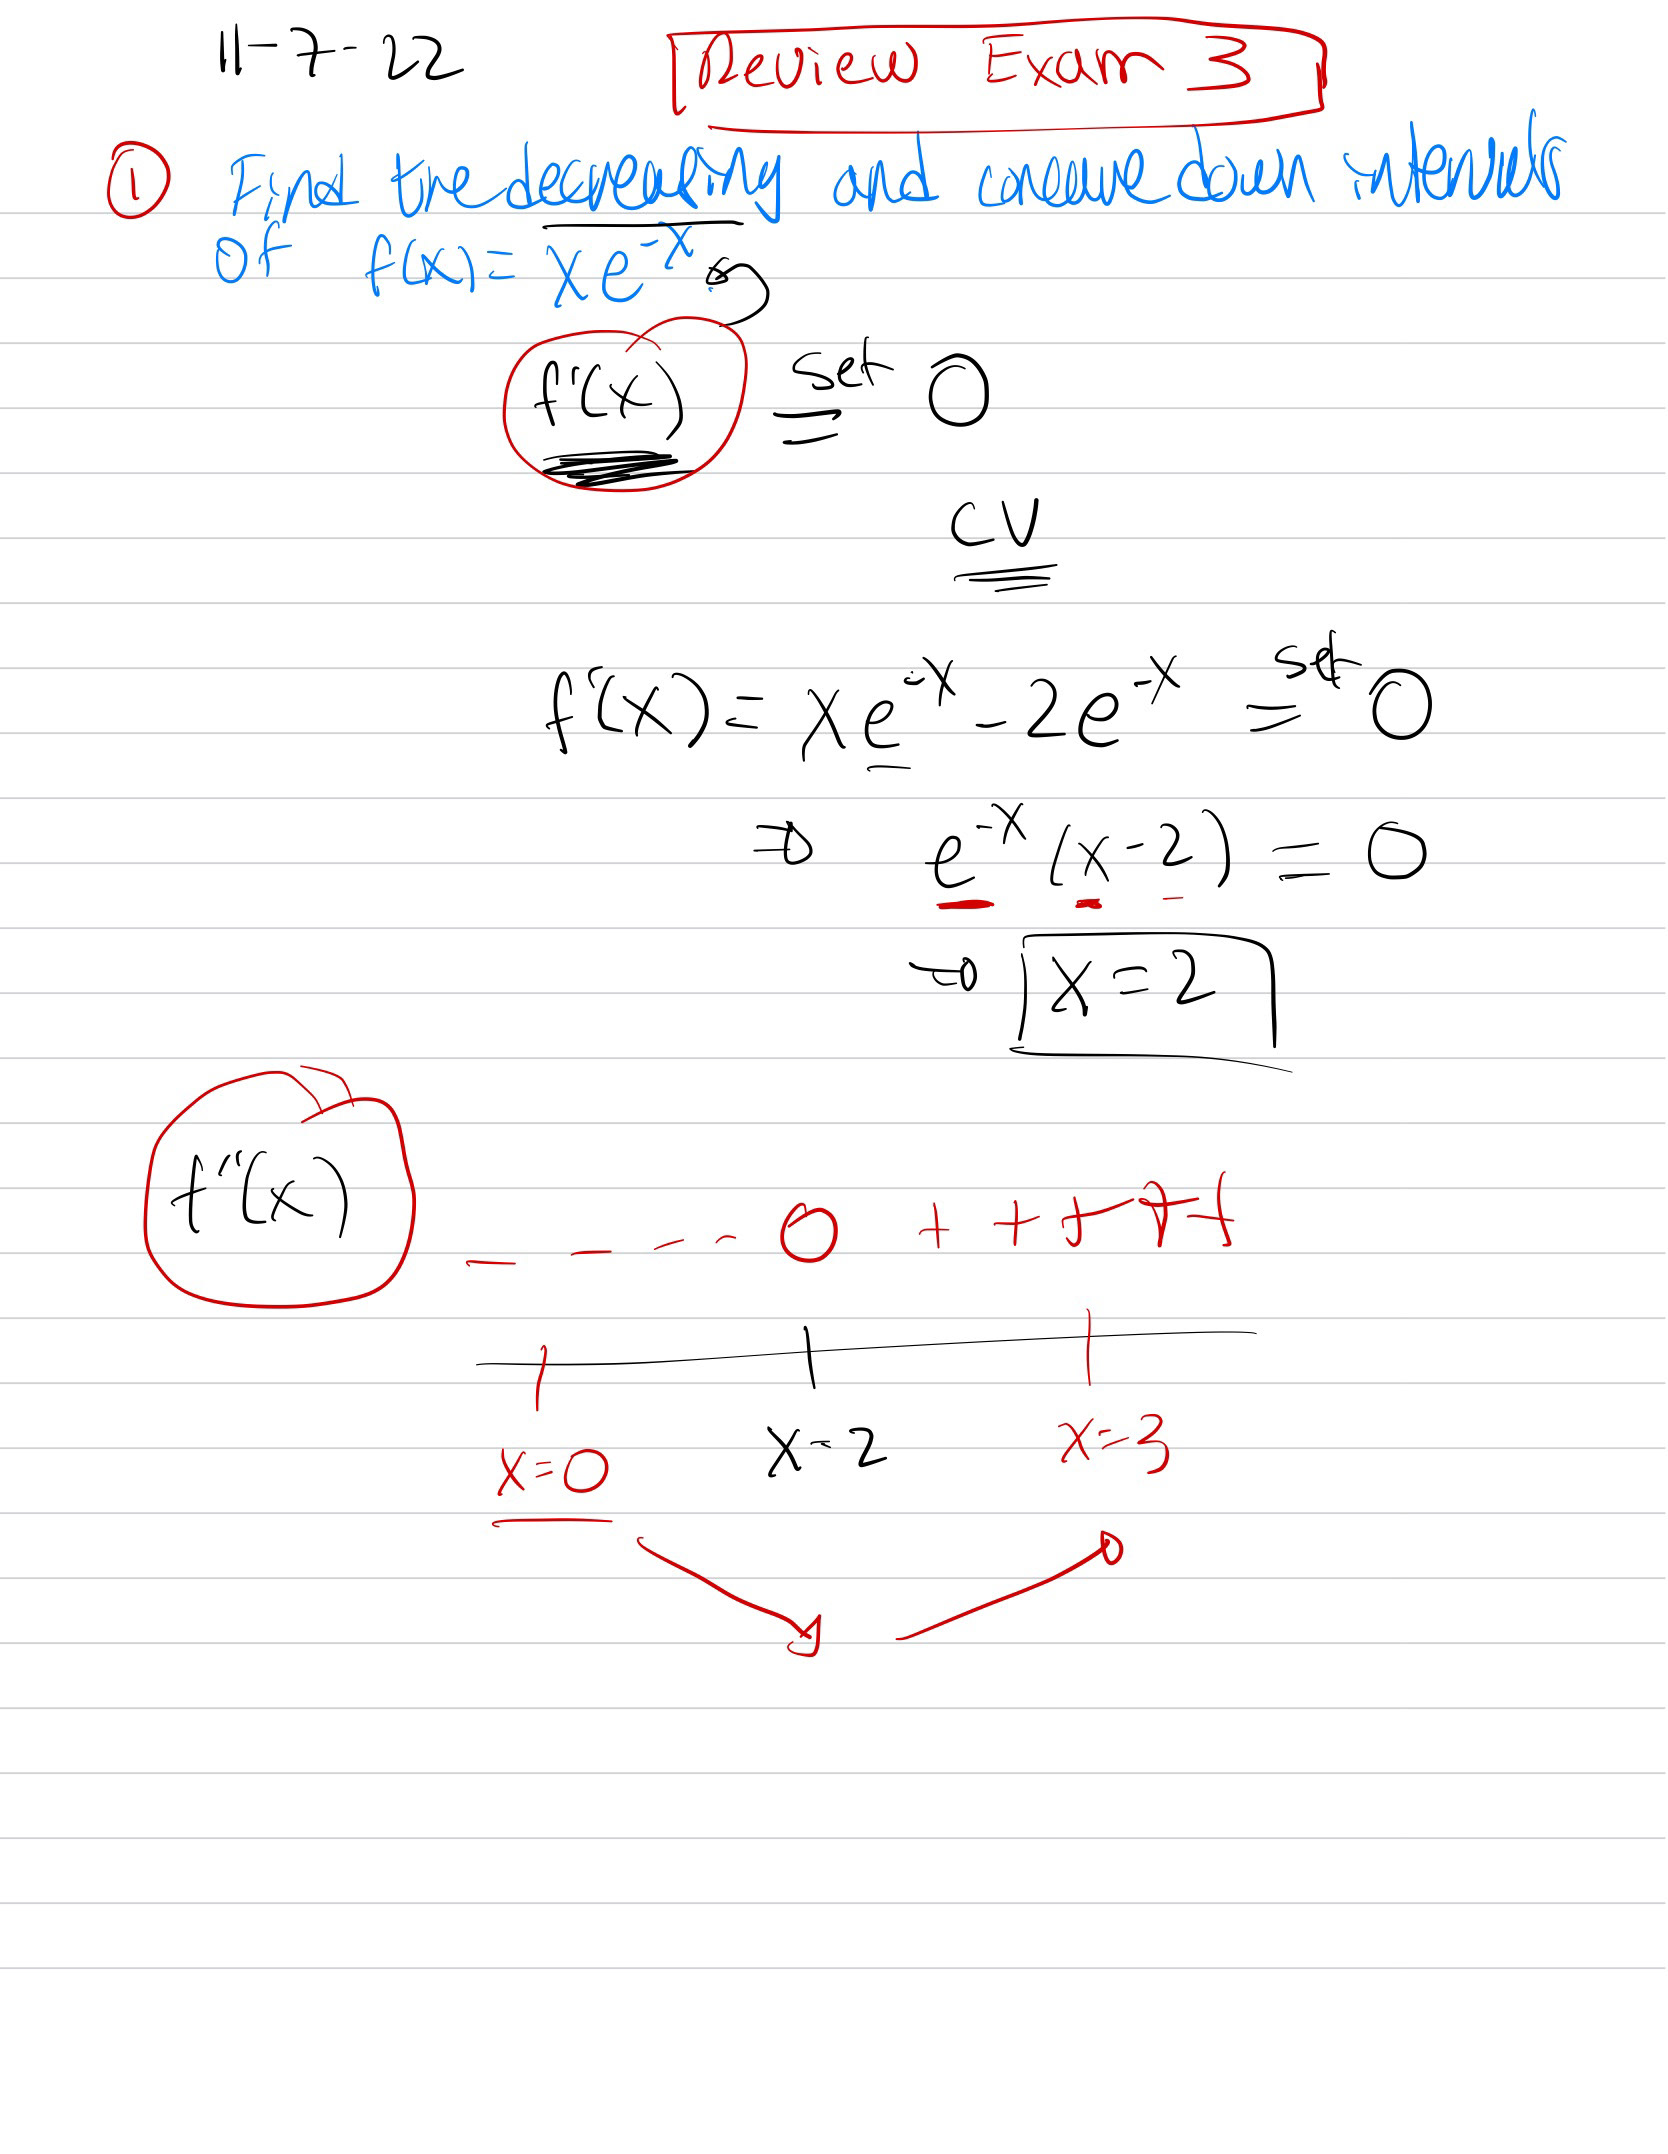 11-7-22 Review Exam 3
① Find the decreasing and concave down intervals
of f(x) = xe^{-x}
f''(x) set = 0
CV
f''(x) = xe^{-x} - 2e^{-x} set = 0
⇒ e^{-x}(x-2) = 0
→ x = 2
f''(x) - - - - 0 + + + + +
x=0 x=2 x=3